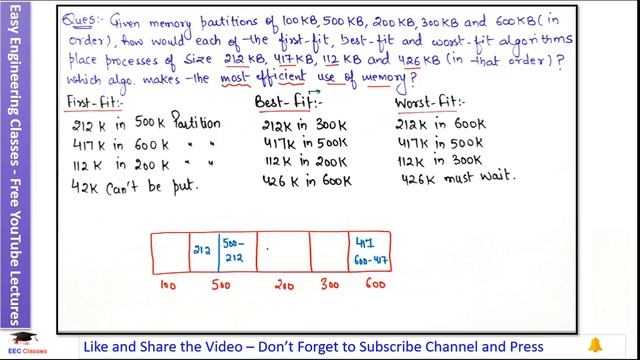 Easy Engineering Classes - Free YouTube Lectures
EEC Classes
Ques:- Given memory partitions of 100KB, 500KB, 200KB, 300KB and 600KB (in
order), how would each of the first-fit, best-fit and worst-fit algorithms
place processes of size 212KB, 417KB, 112KB and 426KB (in that order)?
which algo. makes the most efficient use of memory?
First-fit:-
212K in 500K Partition
417K in 600K " "
112K in 200K " "
42K Can't be put.
Best-fit:-
212K in 300K
417K in 500K
112K in 200K
426K in 600K
Worst-fit:-
212K in 600K
417K in 500K
112K in 300K
426K must wait.
212 500-212 417 600-417
100 500 200 300 600
Like and Share the Video – Don't Forget to Subscribe Channel and Press